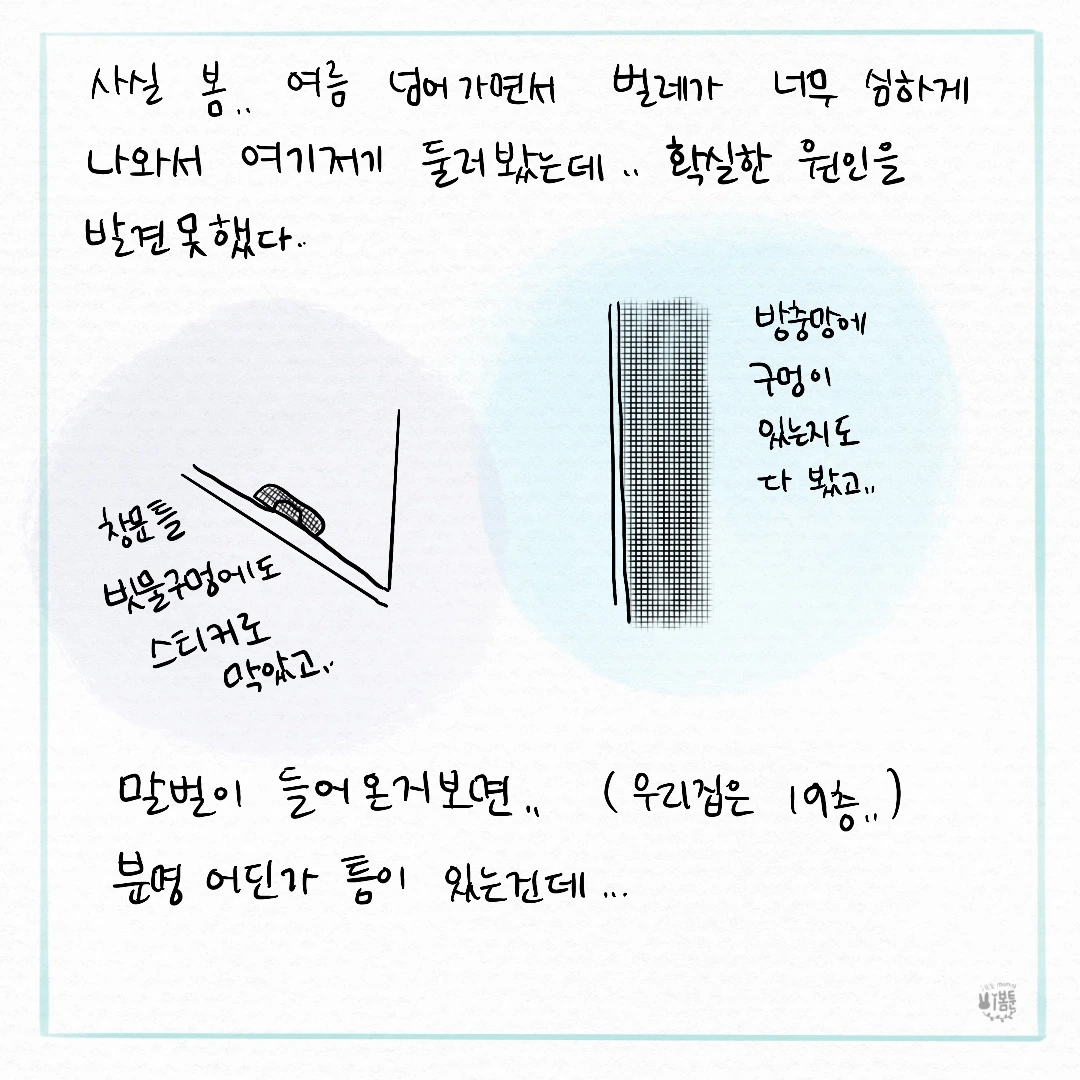 사실 봄.. 여름 넘어가면서 벌레가 너무 심하게
나와서 여기저기 둘러봤는데.. 확실한 원인을
발견못했다..
방충망에
구멍이
있는지도
다 봤고..
창문틀
빗물구멍에도
스티커로
막았고..
말벌이 들어온거보면.. (우리집은 19층..)
분명 어딘가 틈이 있는건데...
봄툰